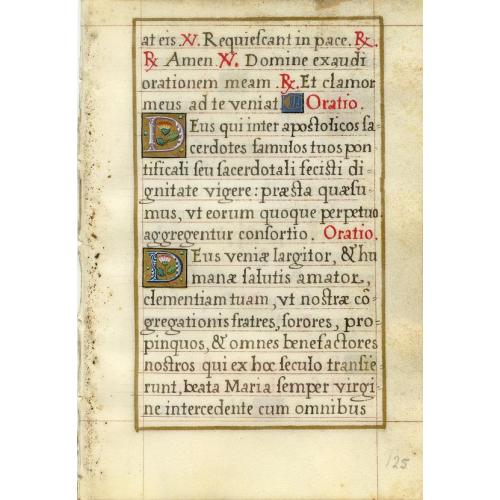 at eis. ℣. Requiescant in pace. ℟.
℟ Amen ℣. Domine exaudi
orationem meam. ℟. Et clamor
meus ad te veniat. Oratio.
DEus qui inter apostolicos sa-
cerdotes famulos tuos pon
tificali seu sacerdotali fecisti di-
gnitate vigere: præsta quæsu-
mus, vt eorum quoque perpetuo
aggregentur consortio. Oratio.
DEus veniæ largitor, & hu
manæ salutis amator,
clementiam tuam, vt nostræ cõ-
gregationis fratres, sorores, pro-
pinquos, & omnes benefactores
nostros qui ex hoc seculo transie-
runt, beata Maria semper virgi-
ne intercedente cum omnibus
125